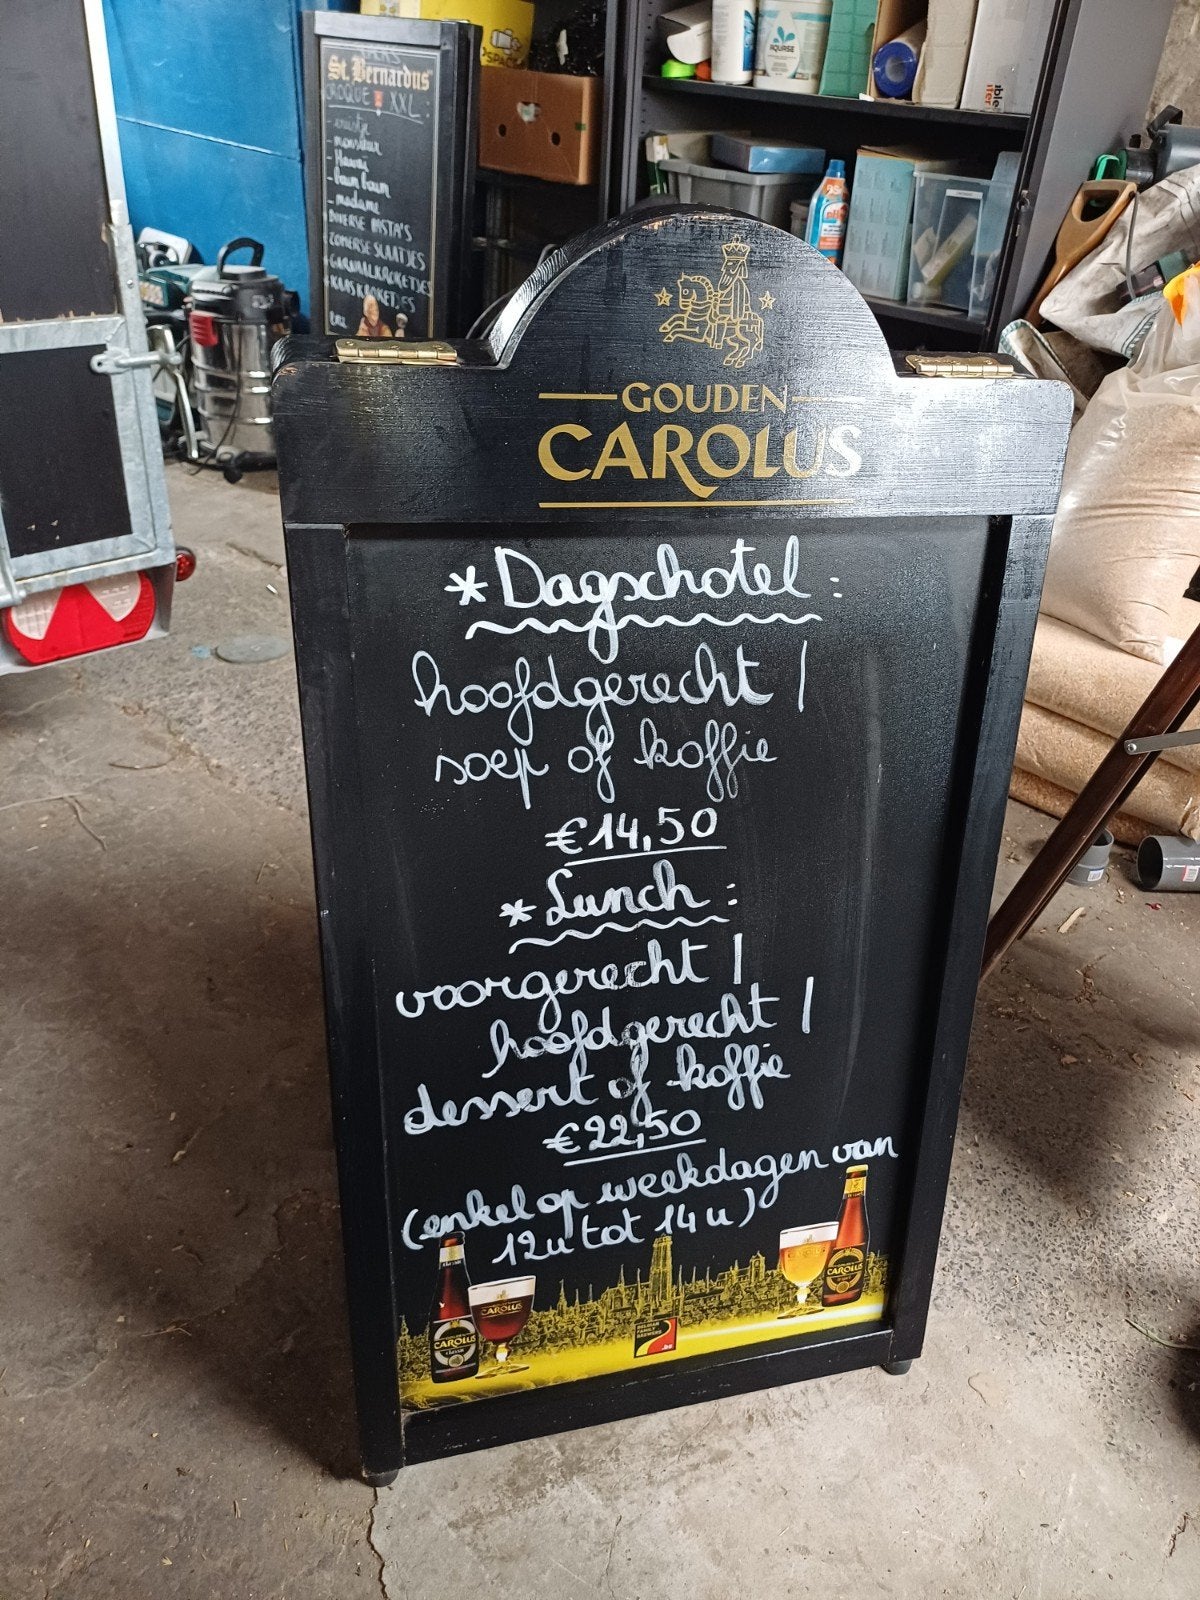 St. Bernardus
CROQUE XXL:
- monsieur
- Hawaï
- boum boum
- madame
• DIVERSE PASTA'S
ZOMERSE SLAATJES
• GARNAALKROKETJES
• KAASKROKETJES
AQUASE
GOUDEN
CAROLUS
* Dagschotel :
hoofdgerecht /
soep of koffie
€14,50
* Lunch :
voorgerecht /
hoofdgerecht /
dessert of koffie
€22,50
(enkel op weekdagen van
12u tot 14u)
CAROLUS
CAROLUS
classic
CAROLUS
BELGIAN
FAMILY
BREWERS
.be